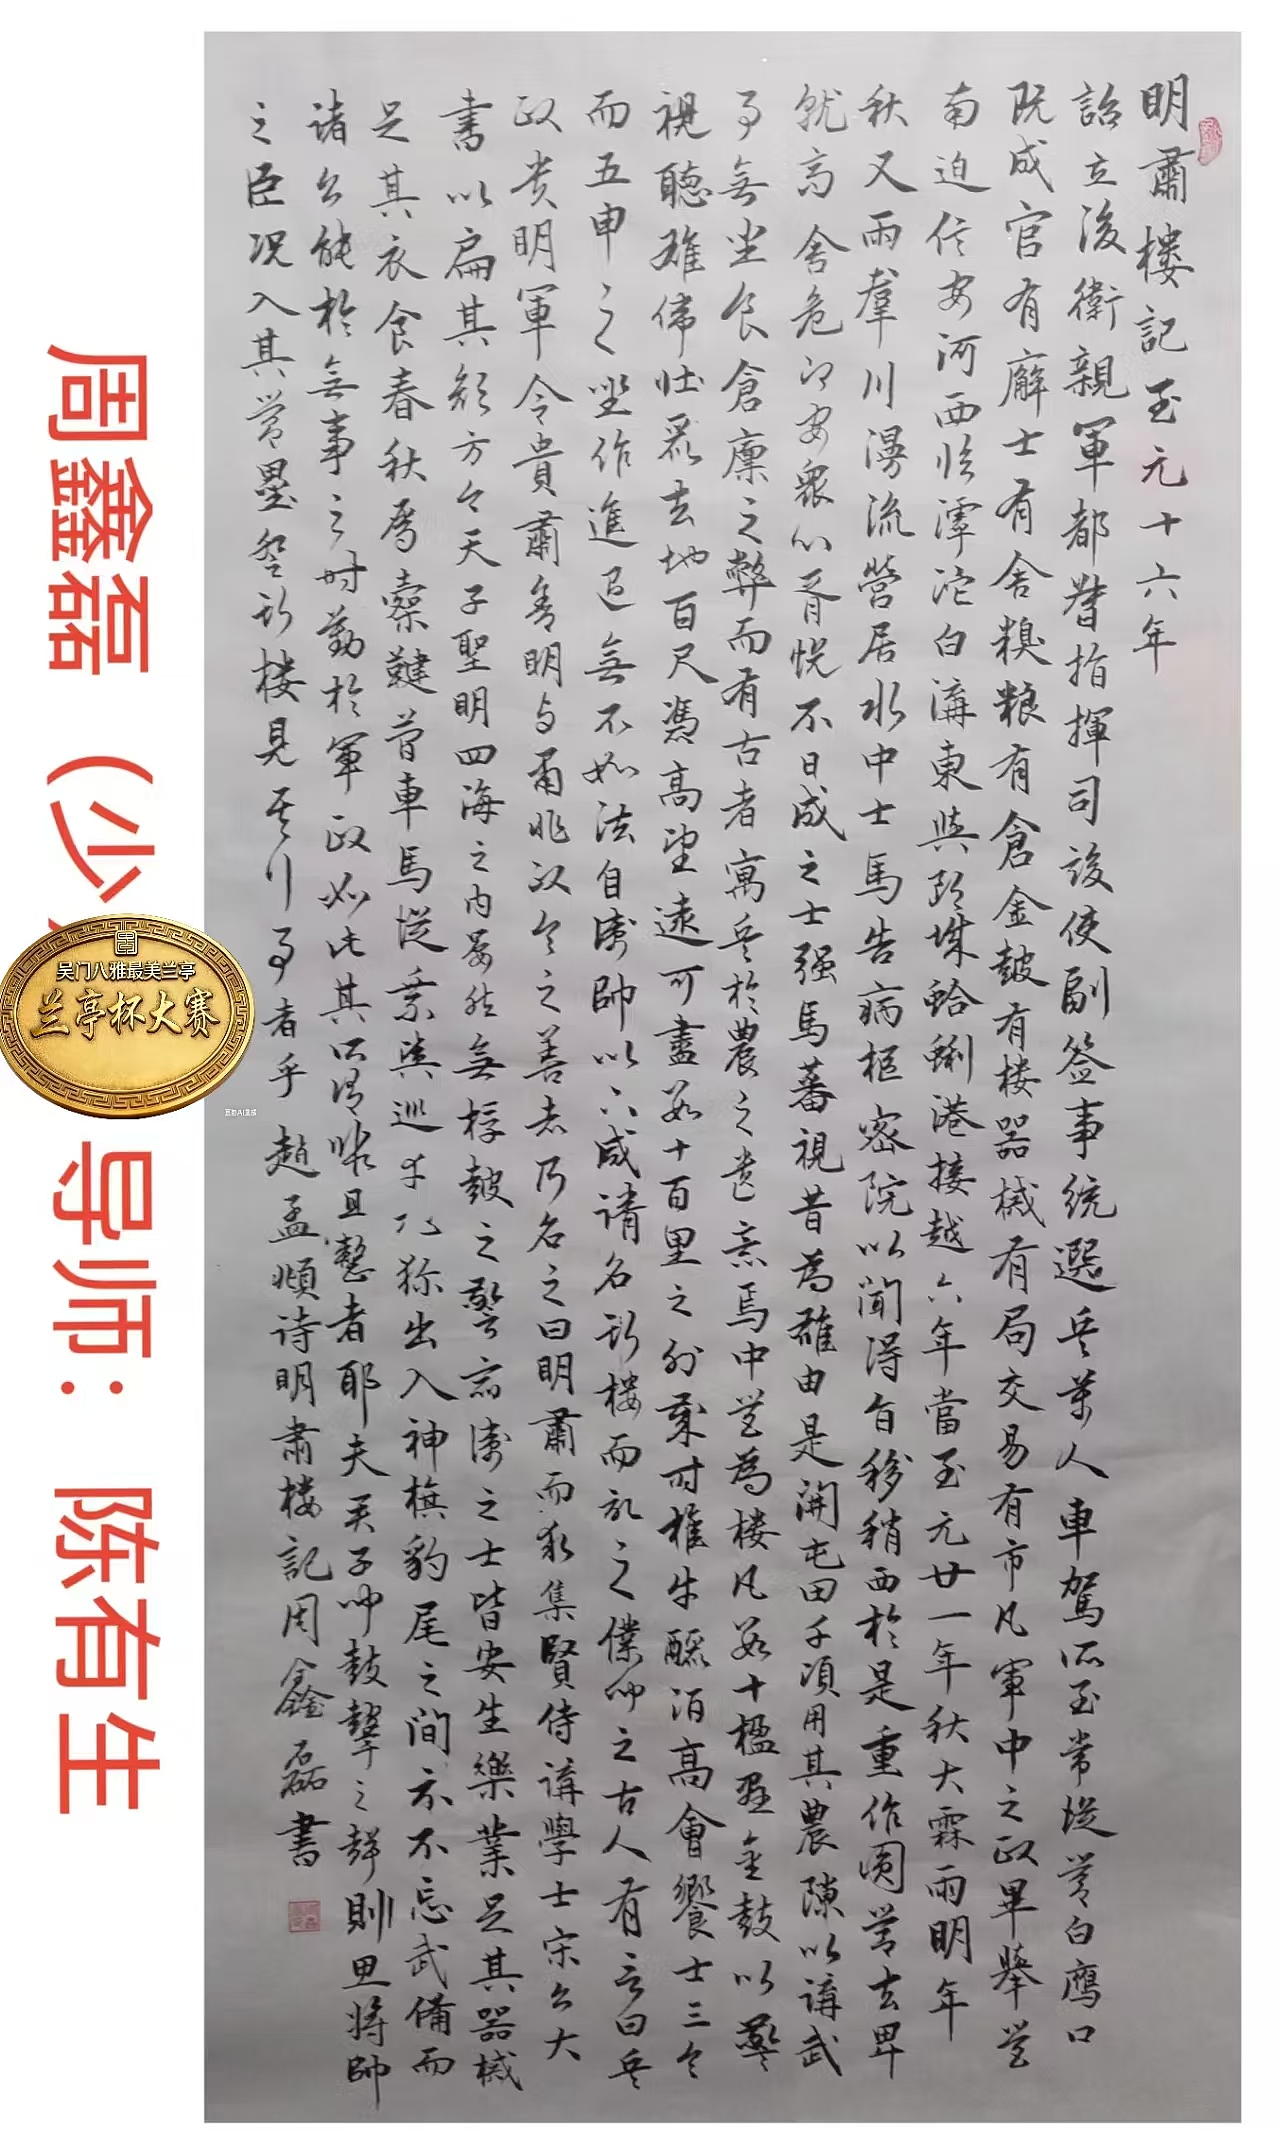 明肅樓記至元十六年
詔立後衛親軍都督指揮司設使副簽事統選兵萬人車駕所至常從營白鷹口
既成官有廨士有舍糗粮有倉金皷有樓器械有局交易有市凡軍中之政畢舉營
南迫信安河西臨滹沱白溝東與郎城蛤蜊港接越六年當至元廿一年秋大霖雨明年
秋又雨羣川漫流營居水中士馬告病樞密院以聞得旨移稍西於是重作圓營去卑
就高舍危即安衆心胥悦不日成之士强馬蕃視昔為雄由是開屯田千頃用其農隙以講武
事無坐食倉廪之弊而有古者寓兵於農之遺意焉中營為樓凡若十楹置金鼓以警
視聽雄偉壮麗去地百尺憑高望遠可盡若十百里之外歲時椎牛釃酒高會饗士三令
而五申之坐作進退無不如法自衛帥以下咸請名斯樓而記之僕聞之古人有言曰兵
政贵明軍令貴肅善明与肅非政令之善者乃名之曰明肅而求集賢侍講學士宋公大
書以扁其顏方今天子聖明四海之内晏然無桴皷之警諸衛之士皆安生樂業足其器械
足其衣食春秋属櫜鞬葺車馬從乘輿巡守狝出入神樞豹尾之間亦不忘武備而
諸公能於無事之时勤於軍政如此其所谓暇且整者耶夫天子聞鼓鼙之聲則思將帥
之臣况入其營壘登斯樓見其行事者乎 趙孟頫诗明肅樓記周鑫磊書
周鑫磊（少
导师：陈有生
吴门八雅最美兰亭
兰亭杯大赛
豆包AI生成